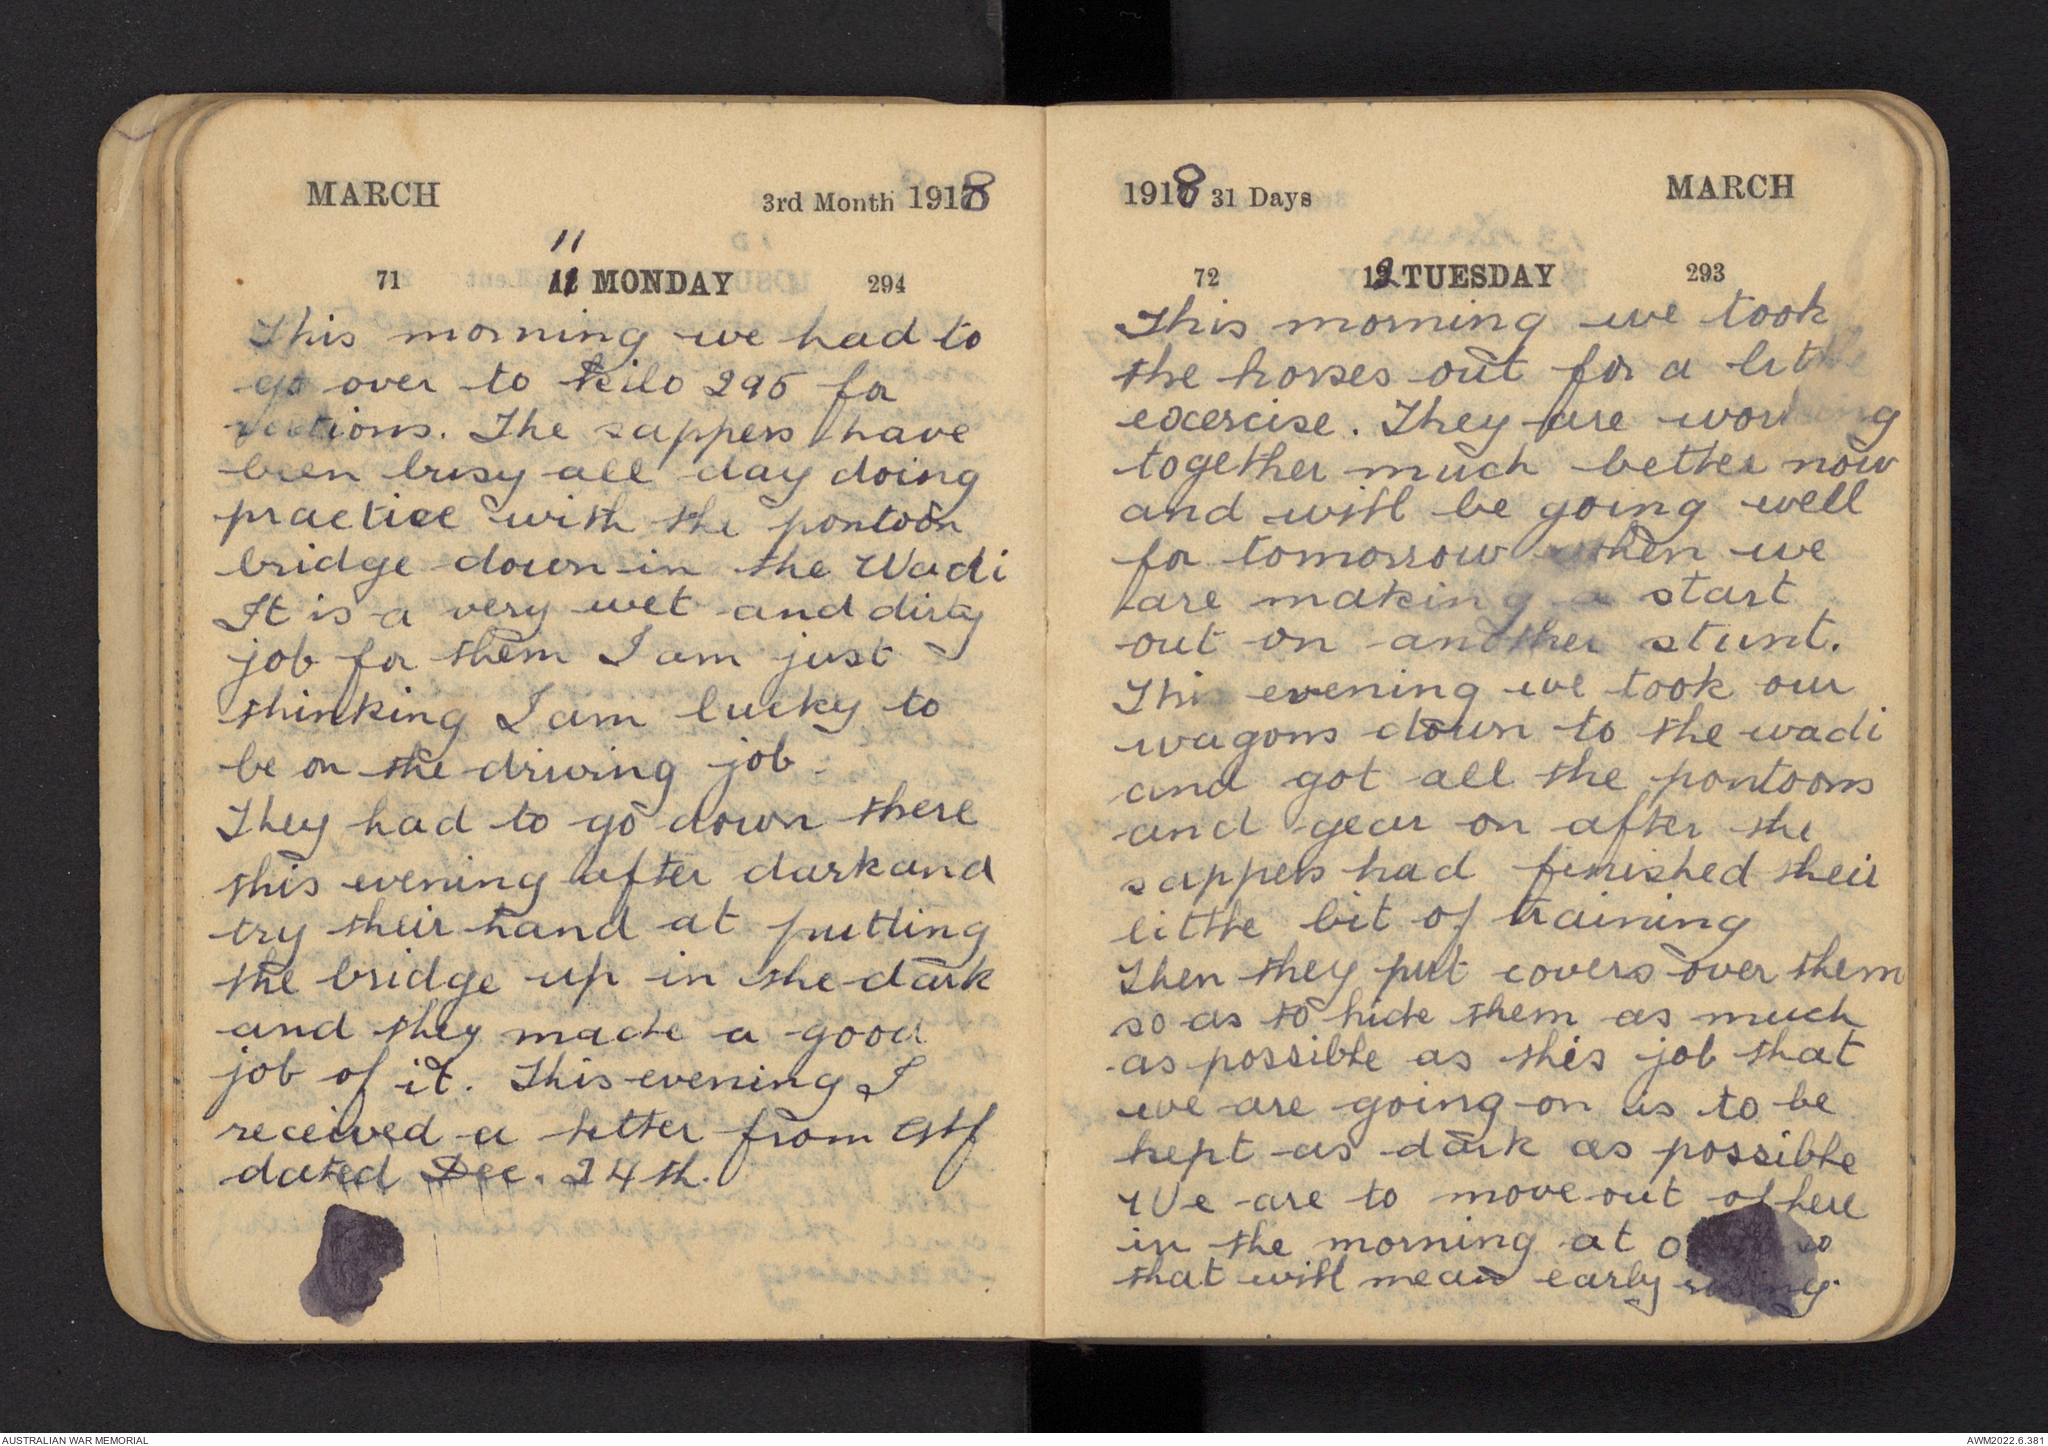 MARCH 3rd Month 1918
11
71 11 MONDAY 294
This morning we had to
go over to Kilo 295 for
rations. The sappers have
been busy all day doing
practice with the pontoon
bridge down in the Wadi
It is a very wet and dirty
job for them I am just
thinking I am lucky to
be on the driving job.
They had to go down there
this evening after dark and
try their hand at putting
the bridge up in the dark
and they made a good
job of it. This evening I
received a letter from
dated Dec. 24th.
1918 31 Days MARCH
72 12 TUESDAY 293
This morning we took
the horses out for a little
excercise. They are working
together much better now
and will be going well
for tomorrow when we
are making a start
out on another stunt.
This evening we took our
wagons down to the wadi
and got all the pontoons
and gear on after the
sappers had finished their
little bit of training
Then they put covers over them
so as to hide them as much
as possible as this job that
we are going on is to be
kept as dark as possible
We are to move out of here
in the morning at so
that will mean early rising.
AUSTRALIAN WAR MEMORIAL
AWM2022.6.381